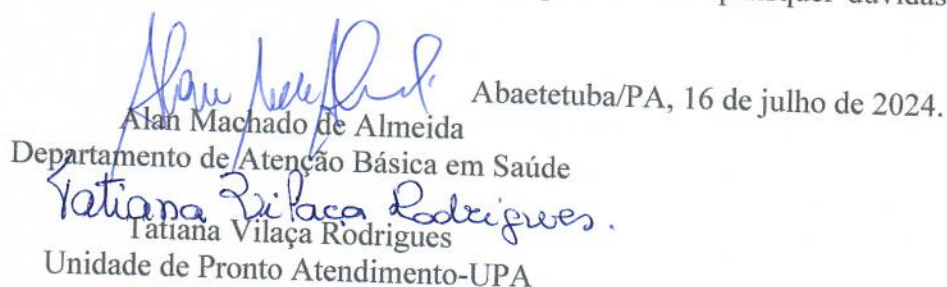 dúvidas
Abaetetuba/PA, 16 de julho de 2024.
Alan Machado de Almeida
Departamento de Atenção Básica em Saúde
Tatiana Vilaça Rodrigues.
Tatiana Vilaça Rodrigues
Unidade de Pronto Atendimento-UPA